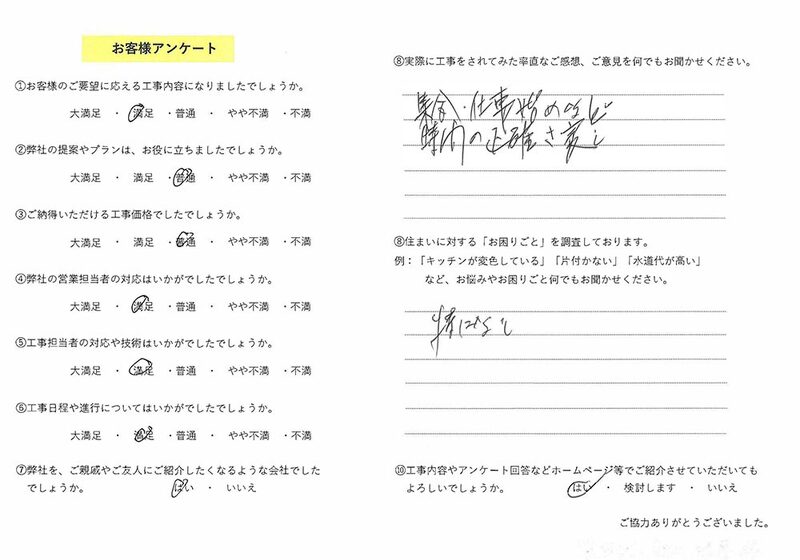 お客様アンケート
①お客様のご要望に応える工事内容になりましたでしょうか。
大満足 ・ 満足 ・普通 ・ やや不満 ・不満
②弊社の提案やプランは、お役に立ちましたでしょうか。
大満足 ・ 満足 ・普通 ・ やや不満 ・不満
③ご納得いただける工事価格でしたでしょうか。
大満足 ・ 満足 ・普通 ・ やや不満 ・不満
④弊社の営業担当者の対応はいかがでしたでしょうか。
大満足 ・ 満足 ・普通 ・ やや不満 ・不満
⑤工事担当者の対応や技術はいかがでしたでしょうか。
大満足 ・ 満足 ・普通 ・ やや不満 ・不満
⑥工事日程や進行についてはいかがでしたでしょうか。
大満足 ・ 満足 ・普通 ・ やや不満 ・不満
⑦弊社を、ご親戚やご友人にご紹介したくなるような会社でした
でしょうか。 はい ・ いいえ
⑧実際に工事をされてみた率直なご感想、ご意見を何でもお聞かせください。
集合・仕事始めなど
時間の正確さ
⑧住まいに対する「お困りごと」を調査しております。
例：「キッチンが変色している」「片付かない」「水道代が高い」
など、お悩みやお困りごと何でもお聞かせください。
特になし
⑩工事内容やアンケート回答などホームページ等でご紹介させていただいても
よろしいでしょうか。 はい ・ 検討します ・ いいえ
ご協力ありがとうございました。